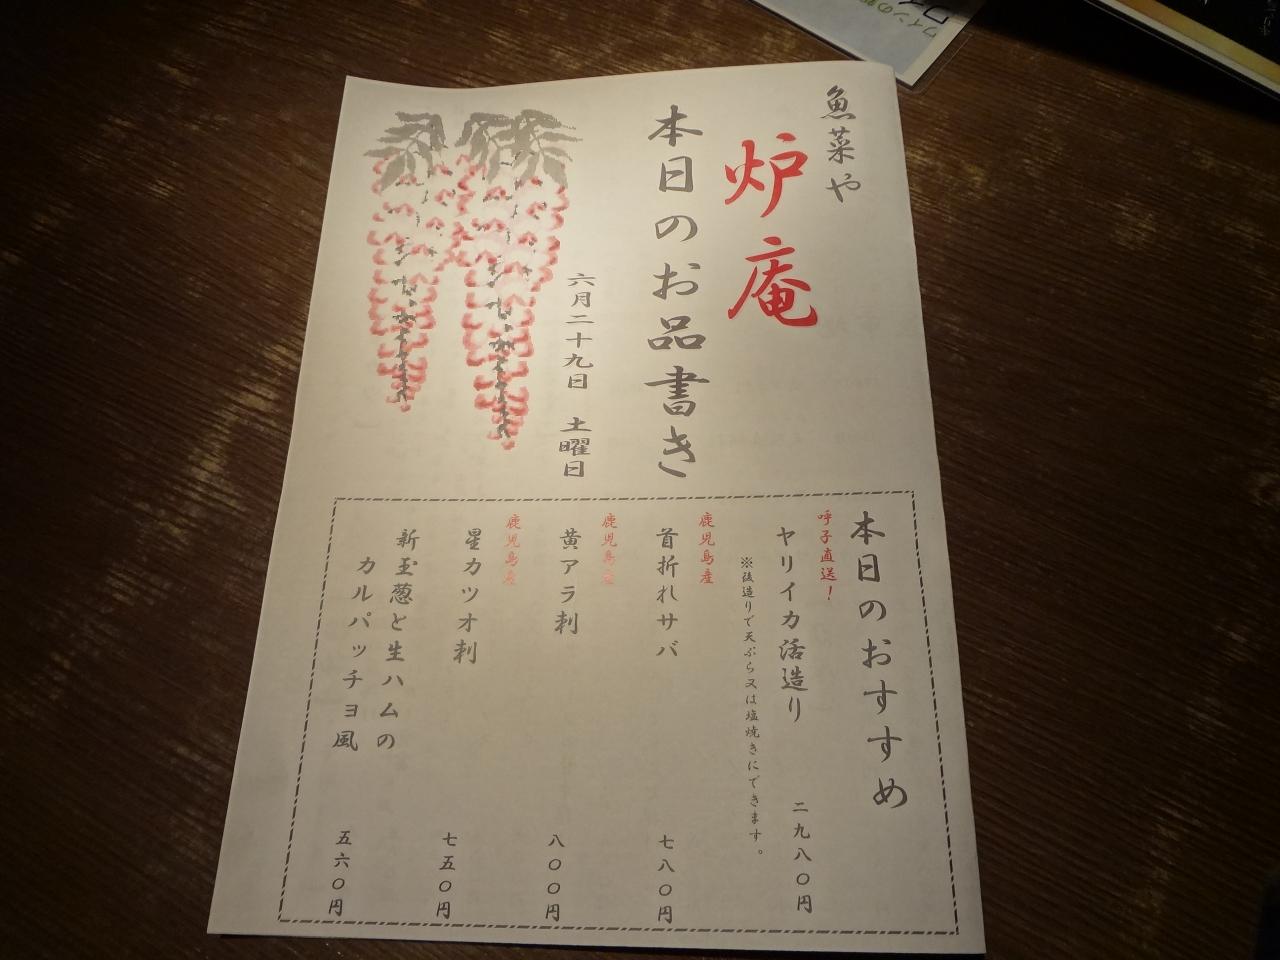 魚菜や
炉庵
本日のお品書き
六月二十九日 土曜日
本日のおすすめ
呼子直送!
ヤリイカ活造り 二九八〇円
※後造りで天ぷら又は塩焼きにできます。
鹿児島産
首折れサバ 七八〇円
鹿児島産
黄アラ刺 八〇〇円
鹿児島産
星カツオ刺 七五〇円
新玉葱と生ハムの
カルパッチョ風 五六〇円